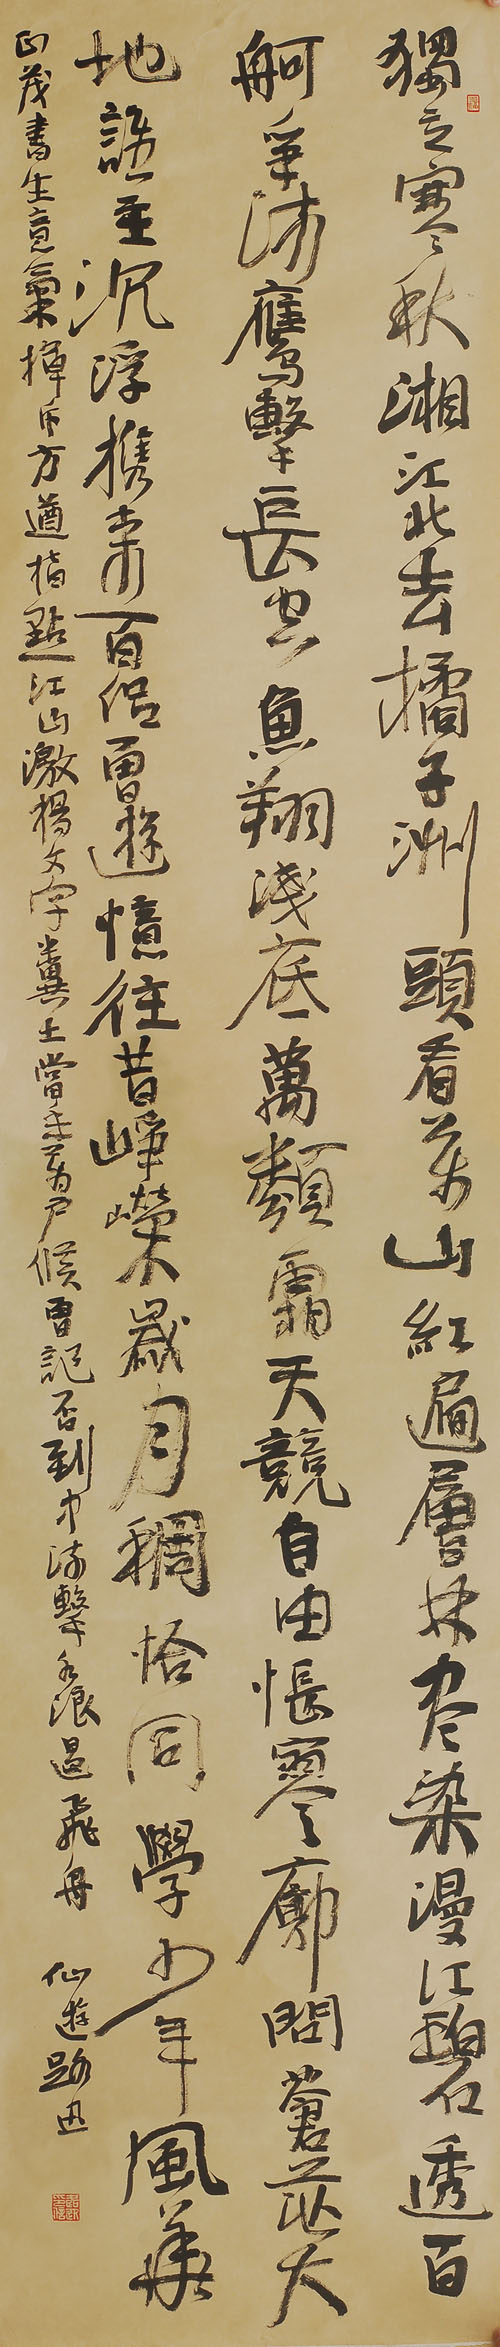 獨立寒秋湘江北去橘子洲頭看萬山紅遍層林尽染漫江碧透百
舸爭流鷹擊長空魚翔淺底萬類霜天競自由悵寥廓問蒼茫大
地誰主沉浮携來百侣曾遊憶往昔崢嶸歲月稠恰同學少年風華
正茂書生意氣揮斥方遒指點江山激揚文字糞土當年萬戶侯曾記否到中流擊水浪遏飛舟 仙遊